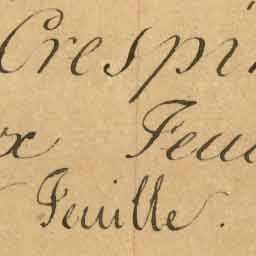 Crespi
x Feui
Feuille.